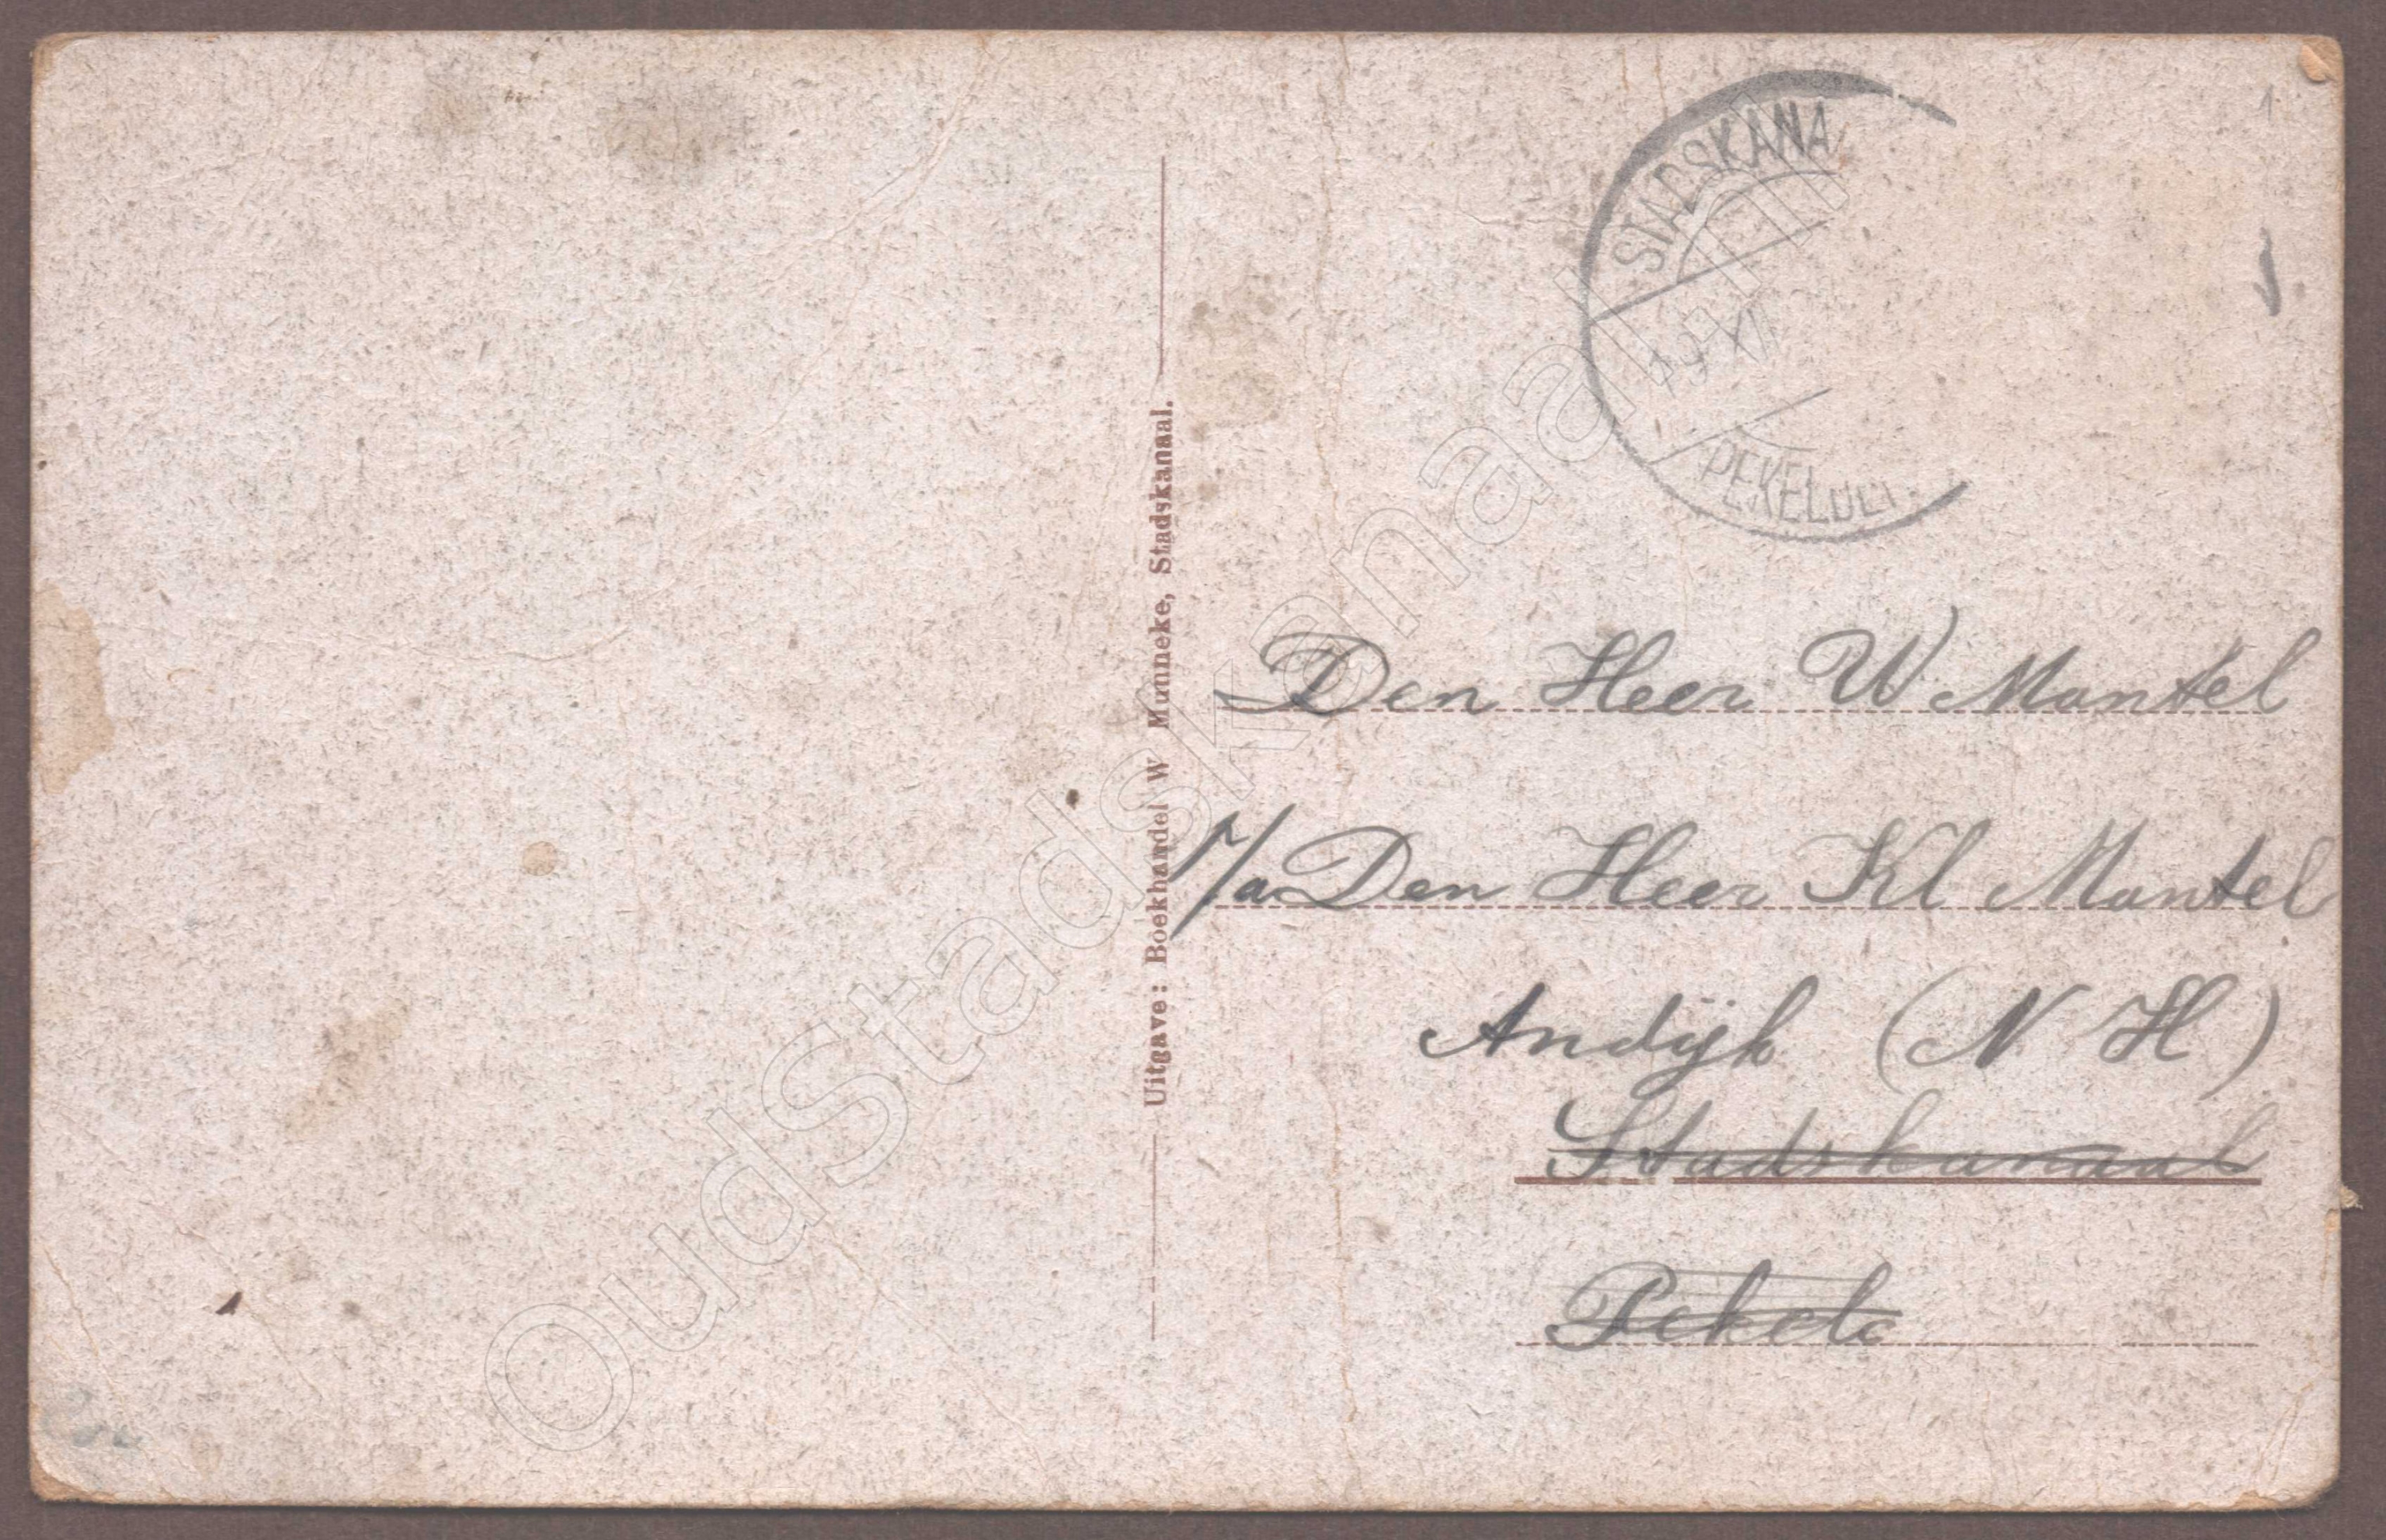 STADSKANA
19 XI
PEKELDER
Uitgave: Boekhandel W Munneke, Stadskanaal.
Den Heer W Mantel
p/a Den Heer Kl Mantel
Andijk (N H)
Stadskanaal
Pekela
OudStadskanaal.nl